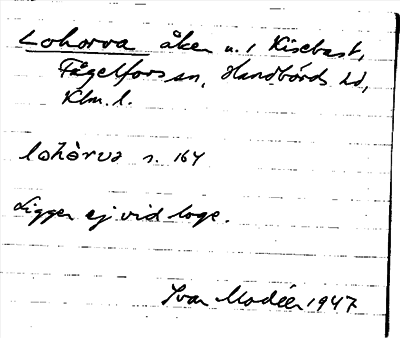 Lohorva åker u. / Kisebast,
Fågelfors sn, Handbörds hd,
Klm. l.
lohòrva s. 164
Ligger ej vid loge.
Ivar Modéer 1947